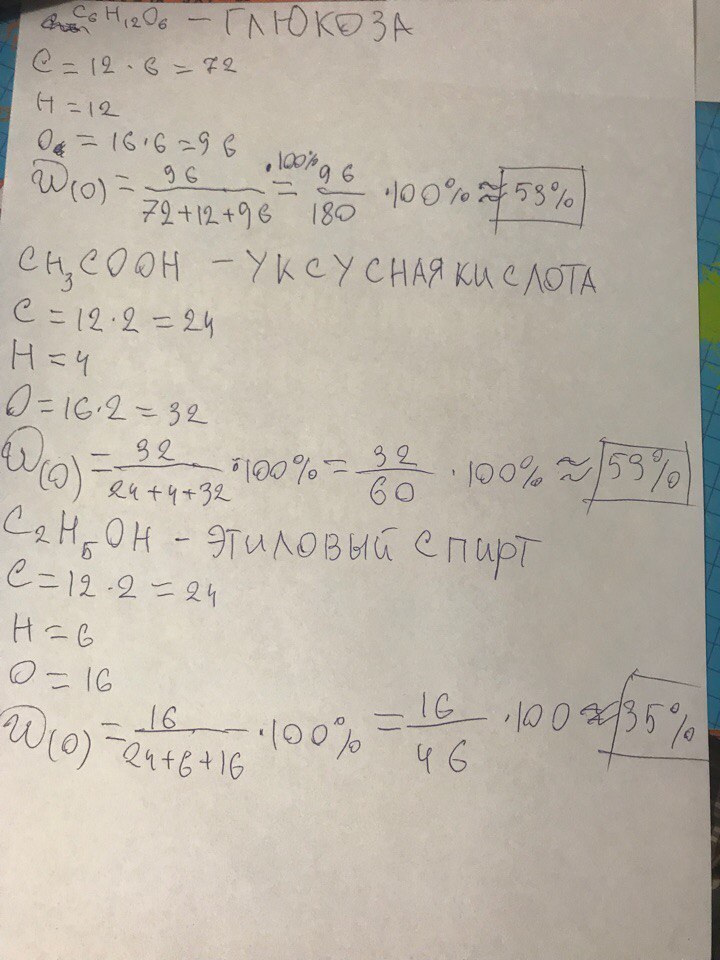 C6H12O6 – ГЛЮКОЗА
C = 12 · 6 = 72
H = 12
O = 16 · 6 = 96
W(O) = 96 / 72+12+96 · 100% = 96 / 180 · 100% ≈ 53%
CH3COOH – УКСУСНАЯ КИСЛОТА
C = 12 · 2 = 24
H = 4
O = 16 · 2 = 32
W(O) = 32 / 24+4+32 · 100% = 32 / 60 · 100% ≈ 53%
C2H5OH – ЭТИЛОВЫЙ СПИРТ
C = 12 · 2 = 24
H = 6
O = 16
W(O) = 16 / 24+6+16 · 100% = 16 / 46 · 100 ≈ 35%